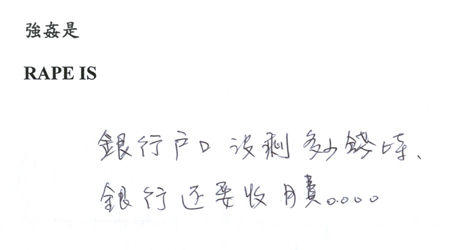 強姦是
RAPE IS
銀行户口没剩多少錢時、
銀行还要收月費。。。。